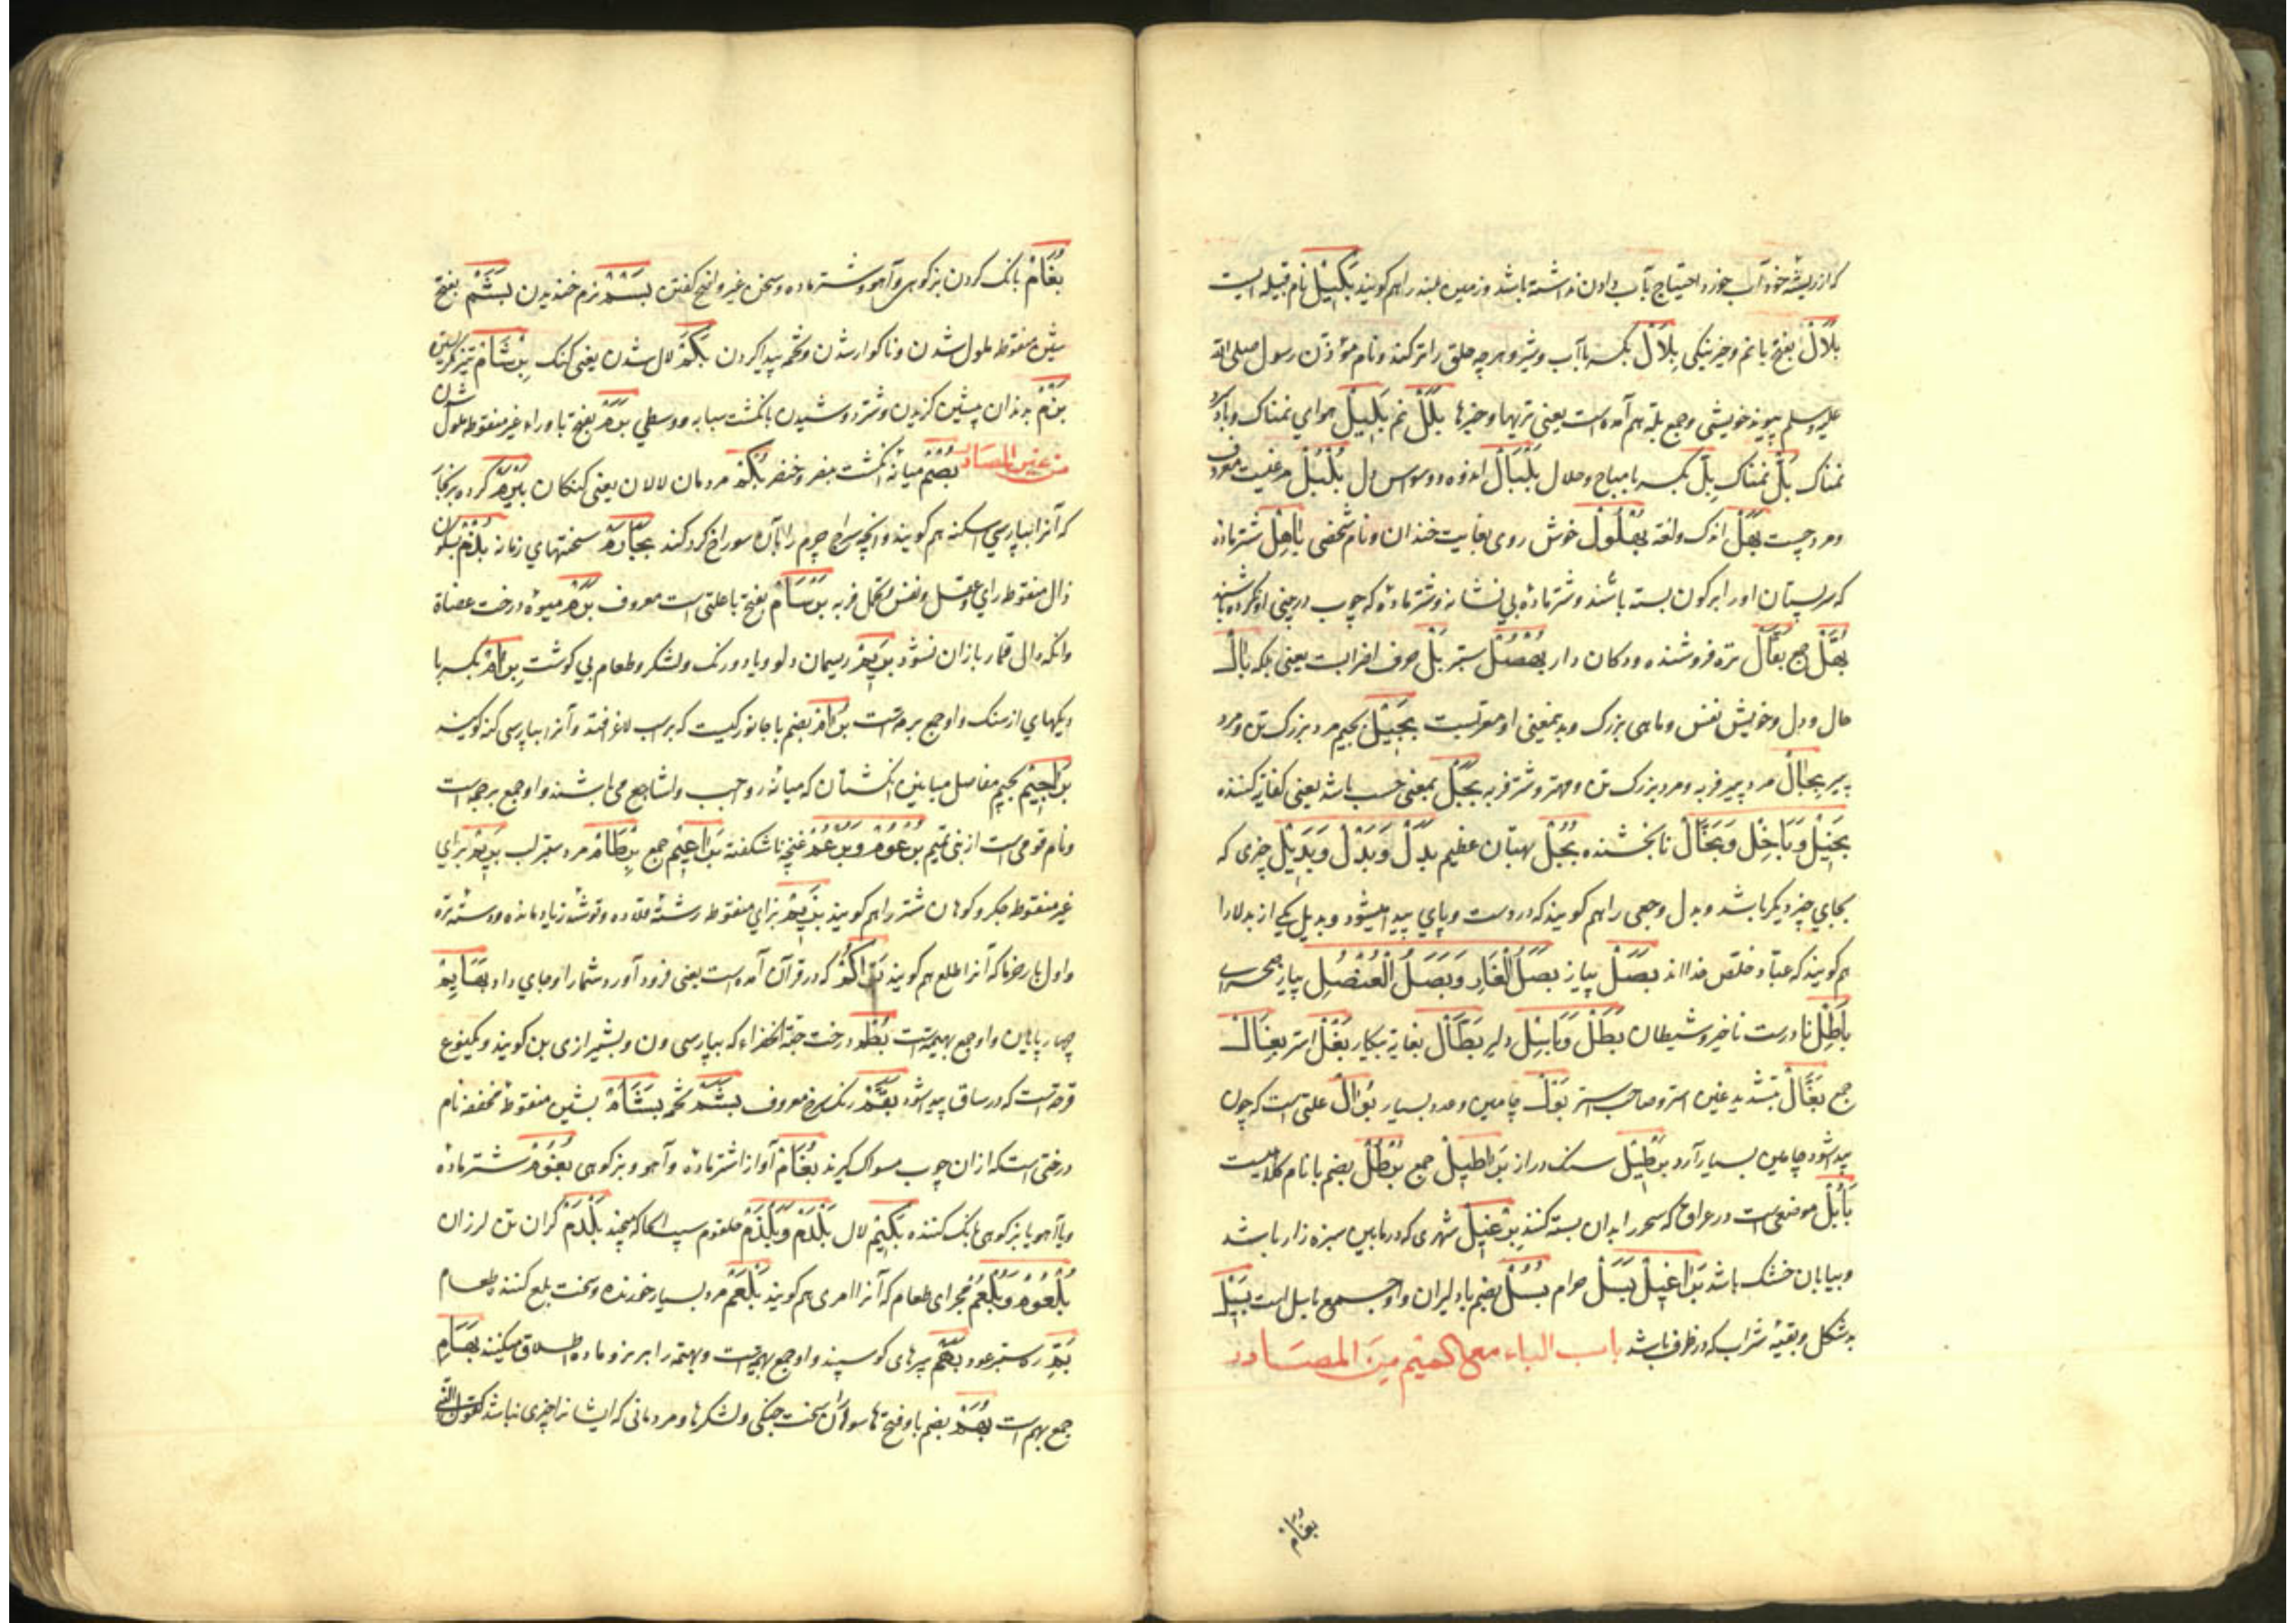 که از ریشه خود آب خورد احتیاج بآب دادن نداشته باشد و زمین بلند را هم کویند بَکِیْلْ نام قبیله ایست
بَلَالْ بفتح با نم و خیر نیکی بِلَالْ بکسر با آب و شیر و هر چه حلق را تر کند و نام مؤذن رسول صلی الله
علیه وسلم پیوند خویشی و جمع بله هم آمده است یعنی تریها و خیرها بَلَلْ نم بَلِیْلْ هوای نمناک و باد
نمناک بَلّ نمناک بِلّ بکسر با مباح و حلال بَلْبَالْ اندوه و وسواس دل بُلْبُلْ مرغیست معروف
و مرد چست بَهْلْ اندک و لعنة بُهْلُولْ خوش روی بغایت خندان و نام شخصی بَاهِلْ شتر ماده
که سر پستان او را بر کون بسته باشند و شتر ماده بی نشانه و شتر ماده که چوب در بینی او نکرده باشند
بُهَّلْ جمع بَقَّالْ تره فروشنده و دکان دار بُهْصُلْ ستبر بَلْ حرف اضرابست یعنی بلکه بَالْ
حال و دل و خویش نفس و ماهی بزرک و بدین معنی او معربست بَجِیْلْ بجیم مرد بزرک تن و مرد
پیر بَجَالْ مرد پیر فربه و مرد بزرک تن و مهتر و شتر فربه بَجَلْ بمعنی حسب باشد یعنی کفایة کننده
بَخِیْلْ وَبَاخِلْ وَبَخَّالْ نابخشنده بُجْلْ بهتان عظیم بَدَلْ وَبِدْلْ وَبَدِیْلْ چیزی که
بجای چیز دیکر باشد و بدل وجعی را هم کویند که در دست و پای پیدا میشود و بدیل یکی از بدلا را
هم کویند که عباد مخلص خدا اند بَصَلْ پیاز بَصَلُ الْفَارِ وَبَصَلُ الْعُنْصُلِ پیاز صحرایی
بَاطِلْ نادرست ناخیر و شیطان بَطَلْ وَبَاسِلْ دلیر بَطَّالْ بغایة بیکار بَغْلْ استر بِغَالْ
جمع بَغَّالْ بتشدید غین استر و صاحب استر بَوْلْ چامین و عدد بسیار بُوَالْ علتی است که چون
پیدا شود چامین بسیار آرد بِرْطِیْلْ سنک دراز بَرَاطِیْلْ جمع بُرْطُلْ بضم با نام کلاهیست
بَابُلْ موضعی است در عراق که سحر را بدان بسته کنند بِرْغِیْلْ شهری که در مابین سبزه زار باشد
و بیابان خشک باشد بَرَاغِیْلْ بَسَلْ حرام بُسُلْ بضم با دلیران و او جمع باسل است بَسِیْلْ
بد شکل و بقیه شراب که در ظرف باشد باب الباء مع المیم مِنَ المصَادر
بُغَامْ
بُغَامْ بانک کردن بز کوهی و آهو و شتر ماده و سخن غیر واضح کفتن بَسْمْ نرم خندیدن بَشَمْ بفتح
شین منقوط ملول شدن و ناکوار شدن و تخمه پیدا کردن بَکَمْ لال شدن یعنی کنک بِرْشَامْ تیز نکریستن
بَزْمْ بدندان پیشین کزیدن و شتر دوشیدن بانکشت سبابه و وسطی بَرَمْ بفتح با و راء غیر منقوط ملول شدن
من غیر المصادر بُصْمْ میانه انکشت بنصر و خنصر بُکْمْ مردمان لالان یعنی کنکان
که آنرا بپارسی اسکنه هم کویند و آنچه سراج چرم را بآن سوراخ کرد کند سختیهای زمانه
ذال منقوط رای و عقل و نفس و تحمل فربه بَرْسَامْ بفتح با علتی است معروف بَرَمْ میوه درخت عضاة
و آنکه مال قمار بازان نشود بَرِیْمْ ریسمان دلو و یا دو رنک و لشکر و طعام بی کوشت بِرَامْ بکسر با
دیکهای از سنک و او جمع برمه است بُرَامْ بضم با جانورکیست که بر اسب لاغر افتد و آنرا بپارسی کنه کویند
بَرَاجِیْمْ بجیم مفاصل میانین انکشتان که میانه رواجب و اشاجع می باشند و او جمع برجمه است
و نام قومی است از بنی تمیم بُرْعُومْ وَبُرْعُمْ غنچه ناشکفته بَرَاعِیْمْ جمع بِرْطَامْ مرد ستبر لب بَرِیْمْ برای
غیر منقوط جکر و کوهان شتر را هم کویند بَزِیْمْ بزای منقوط رشته قلاده و توشه زیاد مانده و دسته تره
و اول بار خرما که آنرا طلع هم کویند که در قرآن آمده است یعنی فرود آورد شما را و جای داد بَهَایِمْ
چهار پایان و او جمع بهیمه است بُطْمْ درخت حبة الخضراء که بپارسی ون و بشیرازی بن کویند و یکنوع
قرحه است که در ساق پیدا شود بَقَّمْ رنک سرخ معروف بَشَمْ تخمه بَشَامْ بشین منقوطه مخففه نام
درختی است که از ان چوب مسواک کیرند بُغَامْ آواز اشتر ماده و آهو و بز کوهی بَغُوْمْ شتر ماده
و یا آهو یا بز کوهی بانک کننده بَکِیْمْ لال بَلْدَمْ وَبَلْذَمْ حلقوم سپ آنجا که بجنبد بَلْدَمْ کران تن لرزان
بُلْعُوْمْ وَبُلْعُمْ مجرای طعام که آنرا مری هم کویند بَلْعَمْ مرد بسیار خورنده و سخت بلع کننده طعام
بَمّ رک ستبر عود بَهْمْ بره های کوسپند و او جمع بهمه است و بهمه را بر نر و ماده اطلاق میکنند بِهَامْ
جمع بهم است بُهَمْ بضم با و فتح ها سواران سخت جنکی و لشکرها و مردمانی که ایشانرا چیزی نباشد